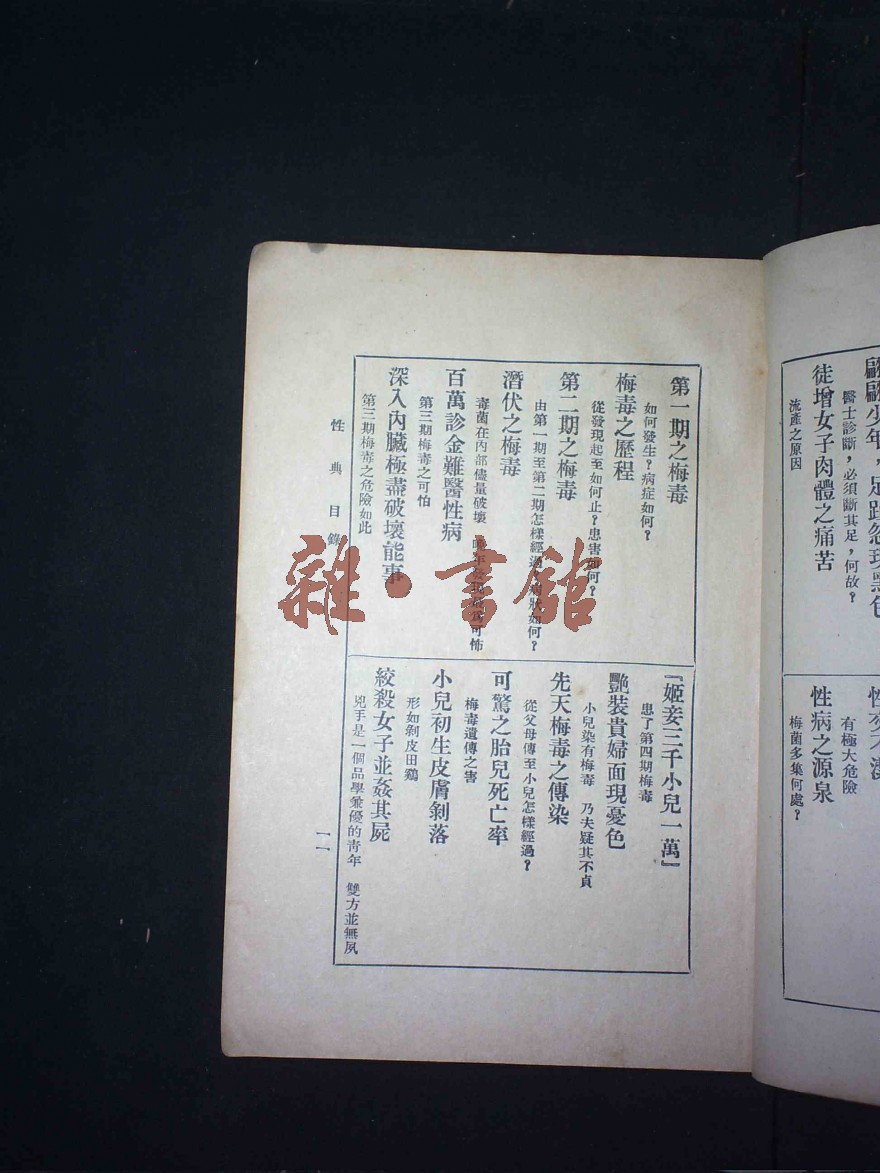 翩翩少年，足趾忽現黑色
醫士診斷，必須斷其足，何故？
徒增女子肉體之痛苦
流產之原因
有極大危險
性病之源泉
梅菌多集何處？
第一期之梅毒
如何發生？病症如何？
梅毒之歷程
從發現起至如何止？患害如何？
第二期之梅毒
由第一期至第二期怎樣經過？病狀如何？
潛伏之梅毒
毒菌在內部儘量破壞 晚年發現最爲可怖
百萬診金難醫性病
第三期梅毒之可怕
深入內臟極盡破壞能事
第三期梅毒之危險如此
『姬妾三千小兒一萬』
患了第四期梅毒
艷裝貴婦面現憂色
小兒染有梅毒 乃夫疑其不貞
先天梅毒之傳染
從父母傳至小兒怎樣經過？
可驚之胎兒死亡率
梅毒遺傳之害
小兒初生皮膚剝落
形如剝皮田鷄
絞殺女子並姦其屍
兇手是一個品學兼優的靑年 雙方並無夙
性典目錄
一一
雜·書館